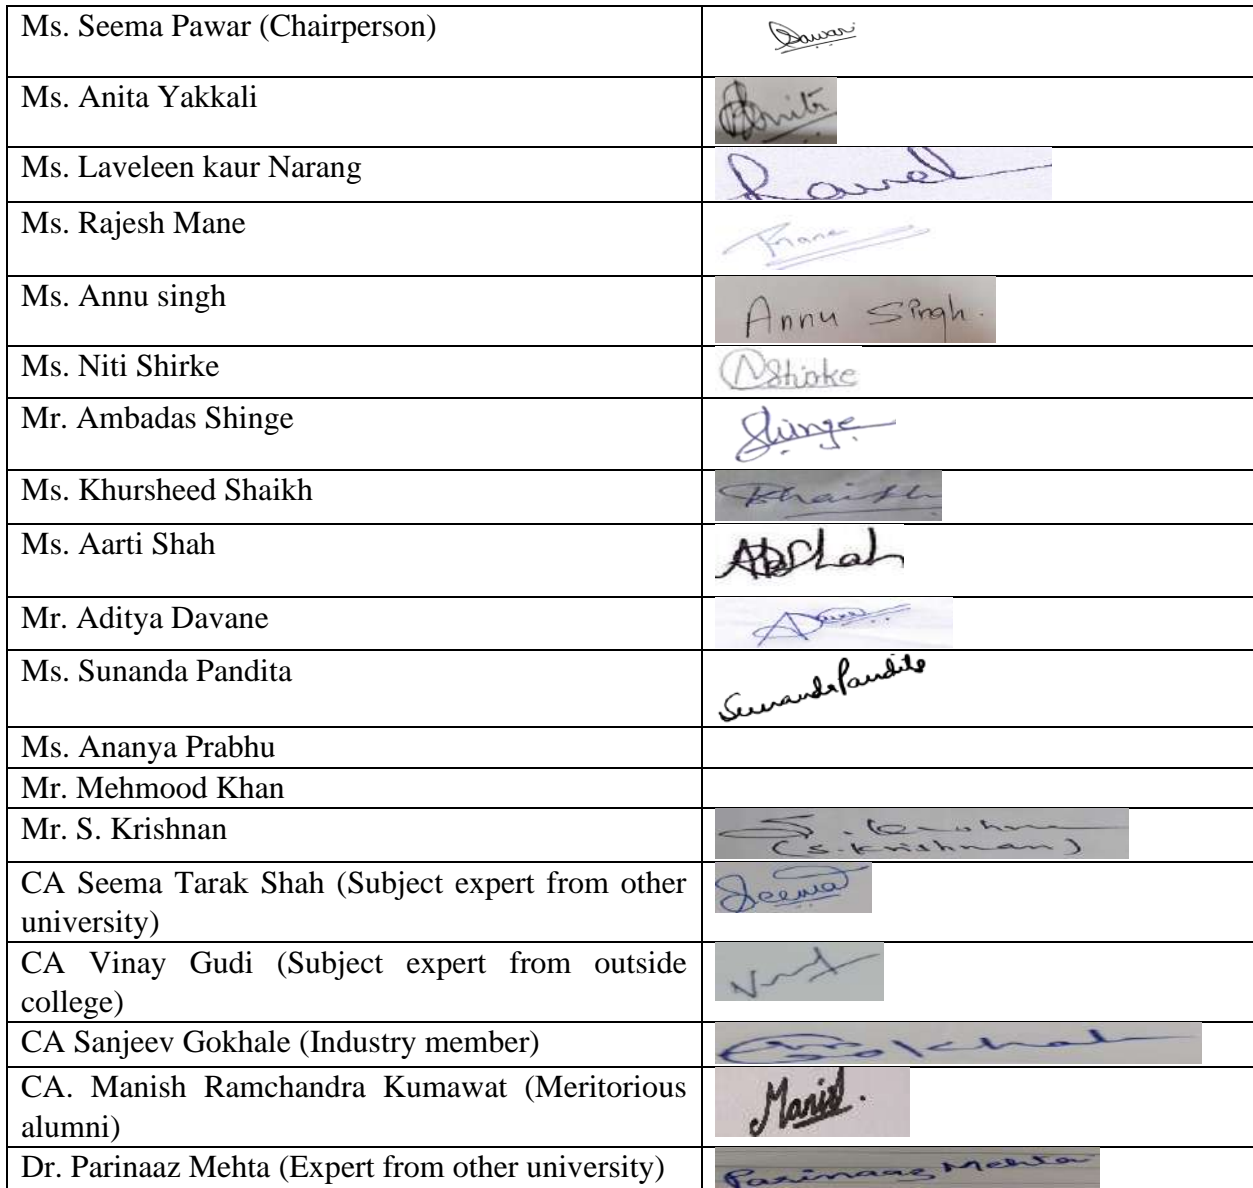 Ms. Seema Pawar (Chairperson)
Pawar
Ms. Anita Yakkali
Anita
Ms. Laveleen kaur Narang
Ms. Rajesh Mane
Mane
Ms. Annu singh
Annu Singh.
Ms. Niti Shirke
NShirke
Mr. Ambadas Shinge
Shinge
Ms. Khursheed Shaikh
Shaikh
Ms. Aarti Shah
Mr. Aditya Davane
Ms. Sunanda Pandita
Sunanda Pandita
Ms. Ananya Prabhu
Mr. Mehmood Khan
Mr. S. Krishnan
(S. Krishnan)
CA Seema Tarak Shah (Subject expert from other
university)
Seema
CA Vinay Gudi (Subject expert from outside
college)
CA Sanjeev Gokhale (Industry member)
Gokhale
CA. Manish Ramchandra Kumawat (Meritorious
alumni)
Manish.
Dr. Parinaaz Mehta (Expert from other university)
Parinaaz Mehta